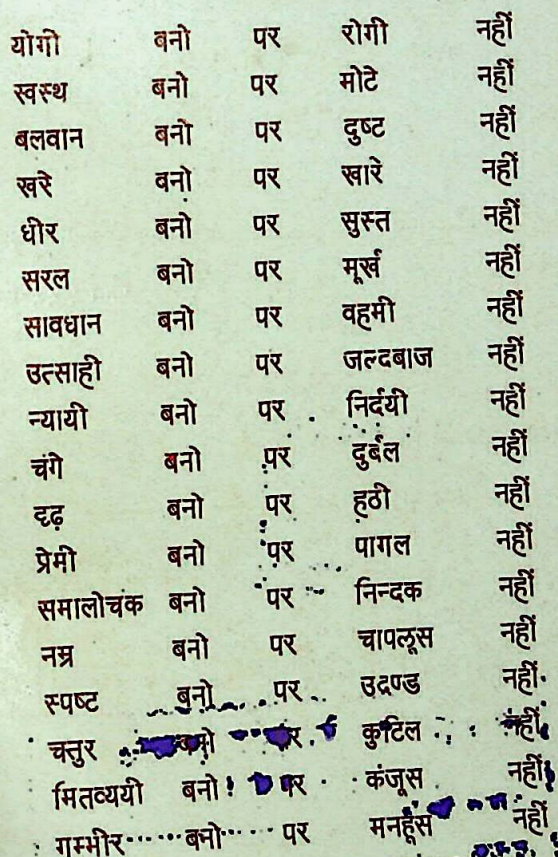 योगी बनो पर रोगी नहीं
स्वस्थ बनो पर मोटे नहीं
बलवान बनो पर दुष्ट नहीं
खरे बनो पर खारे नहीं
धीर बनो पर सुस्त नहीं
सरल बनो पर मूर्ख नहीं
सावधान बनो पर वहमी नहीं
उत्साही बनो पर जल्दबाज नहीं
न्यायी बनो पर निर्दयी नहीं
चंगे बनो पर दुर्बल नहीं
दृढ़ बनो पर हठी नहीं
प्रेमी बनो पर पागल नहीं
समालोचक बनो पर निन्दक नहीं
नम्र बनो पर चापलूस नहीं
स्पष्ट बनो पर उद्रण्ड नहीं
चतुर बनो पर कुटिल नहीं
मितव्ययी बनो पर कंजूस नहीं
गम्भीर बनो पर मनहूस नहीं